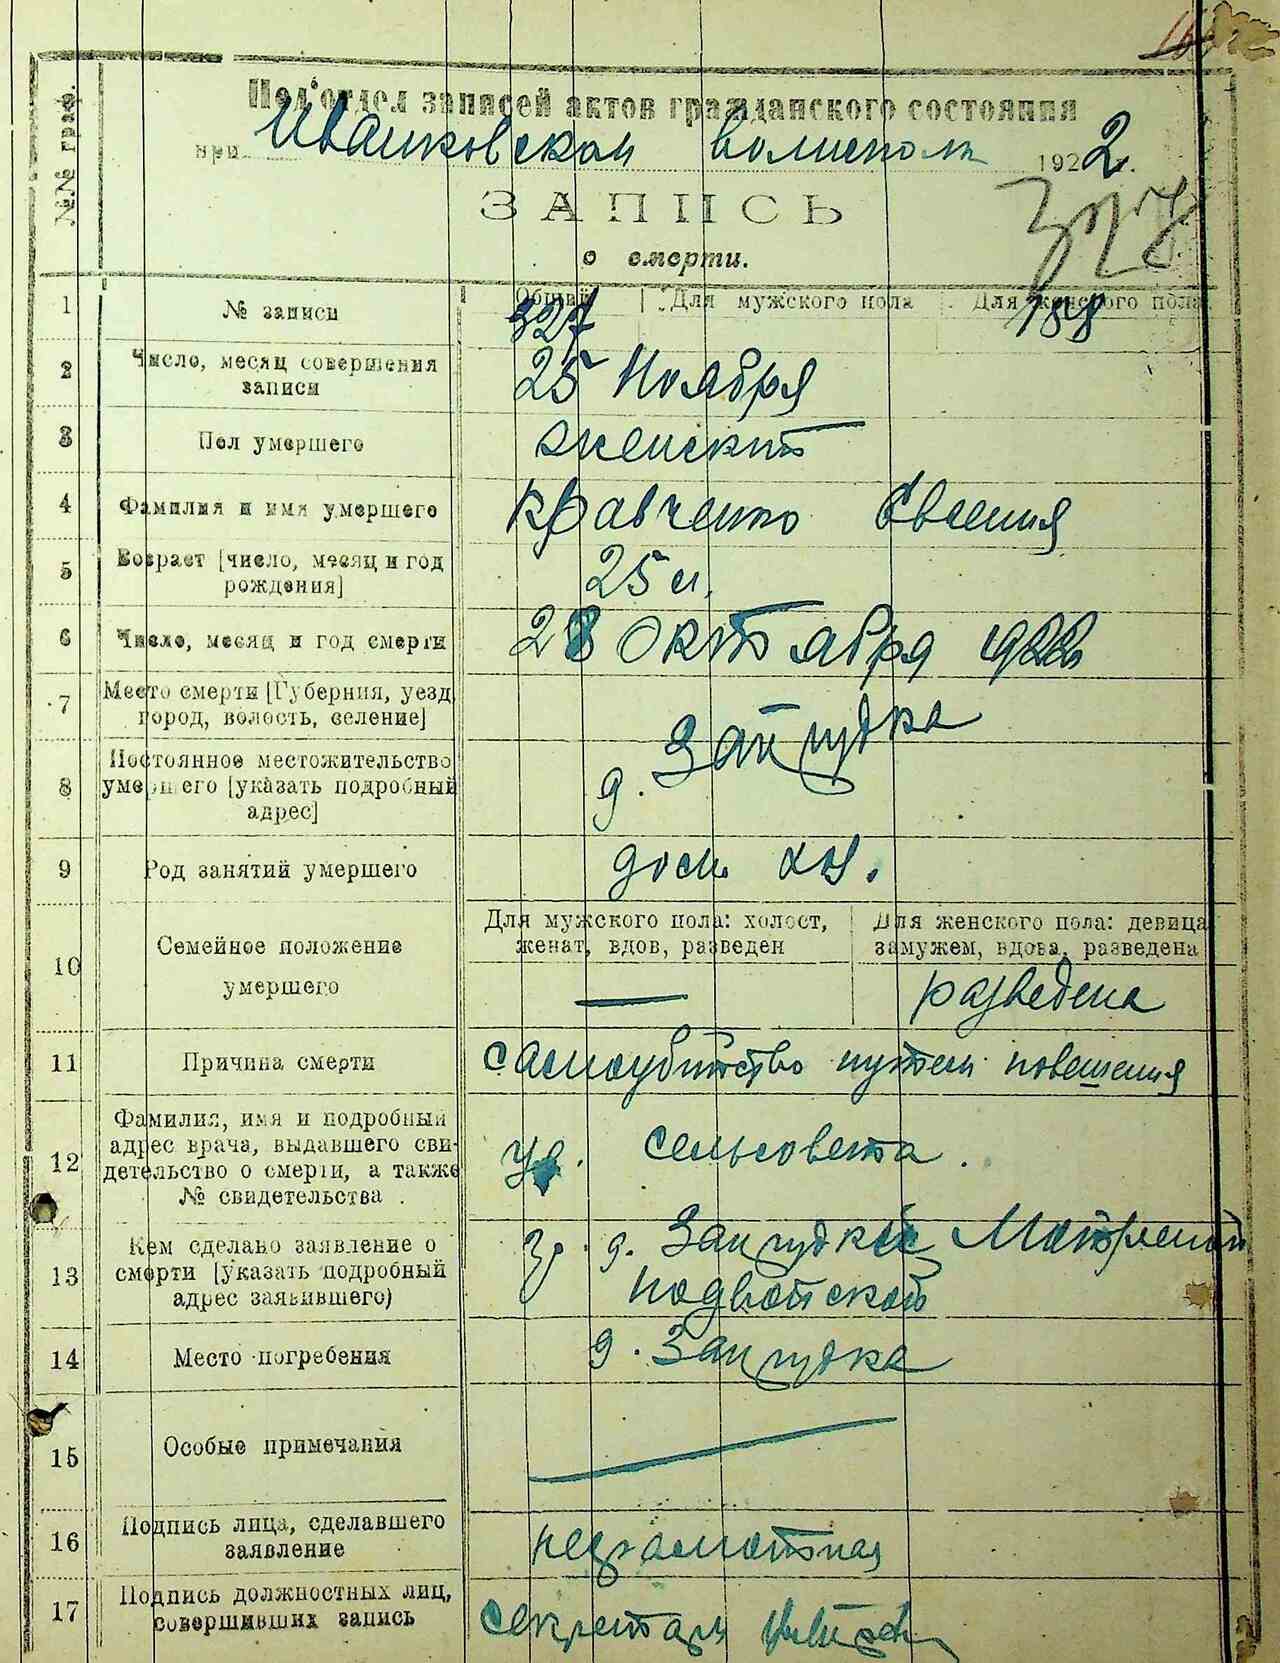 №№ граф.
Под'отдел записей актов гражданского состояния
при Ивашковском волисполк 1922 г.
327
ЗАПИСЬ
о смерти.
1 № записи Общий Для мужского пола Для женского пола
327 188
2 Число, месяц совершения записи 25 Ноября
3 Пол умершего женский
4 Фамилия и имя умершего Кравченко Евгения
5 Возраст [число, месяц и год рождения] 25 л.
6 Число, месяц и год смерти 28 Октября 1922
7 Место смерти [Губерния, уезд, город, волость, селение]
8 Постоянное местожительство умершего [указать подробный адрес] д.
9 Род занятий умершего дом. хоз.
10 Семейное положение умершего
Для мужского пола: холост, женат, вдов, разведен
Для женского пола: девица, замужем, вдова, разведена
— разведена
11 Причина смерти самоубийство путем повешения
12 Фамилия, имя и подробный адрес врача, выдавшего свидетельство о смерти, а также № свидетельства
сельсовета.
13 Кем сделано заявление о смерти [указать подробный адрес заявившего)
гр. д. Матреной
14 Место погребения д.
15 Особые примечания
16 Подпись лица, сделавшего заявление неграмотная
17 Подпись должностных лиц, совершивших запись секретарь